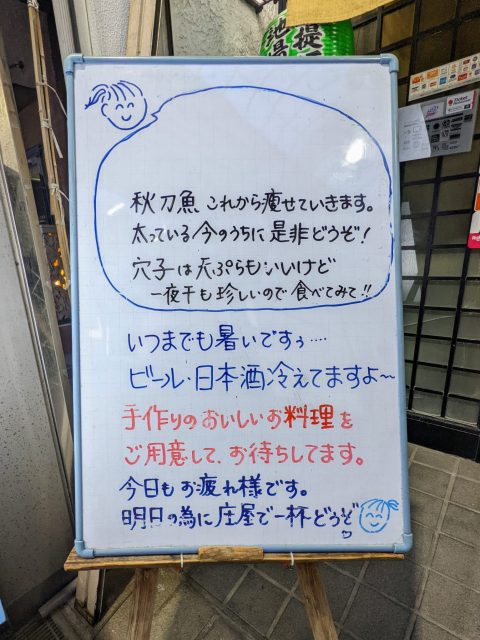 秋刀魚 これから痩せていきます。
太っている今のうちに是非どうぞ!
穴子は天ぷらもいいけど
一夜干も珍しいので食べてみて!!
いつまでも暑いですぅ‥‥
ビール・日本酒冷えてますよ〜
手作りのおいしいお料理を
ご用意して、お待ちしてます。
今日もお疲れ様です。
明日の為に庄屋で一杯どうぞ